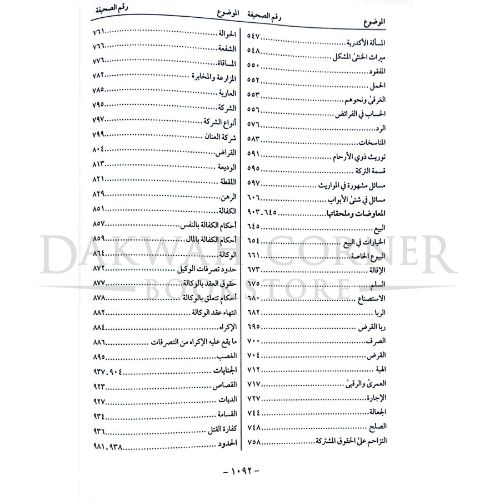 الموضوع رقم الصحيفة
المسألة الأكدرية ٥٤٧
ميراث الخنثى المشكل ٥٤٨
المفقود ٥٥٠
الحمل ٥٥٢
الغرقى ونحوهم ٥٥٣
الحساب في الفرائض ٥٥٦
الرد ٥٧٦
المناسخات ٥٨٣
توريث ذوي الأرحام ٥٩١
قسمة التركة ٥٩٥
مسائل مشهورة في المواريث ٥٩٧
مسائل في شتى الأبواب ٦٠٦
المعاوضات وملحقاتها ٦٤٥-٩٠٣
البيع ٦٤٥
الخيارات في البيع ٦٥٤
البيوع الخاصة ٦٦١
الإقالة ٦٧٣
السلم ٦٧٥
الاستصناع ٦٨٠
الربا ٦٨٢
ربا القرض ٦٩٥
الصرف ٧٠٠
القرض ٧٠٤
الهبة ٧١٢
العمرى والرقبى ٧١٧
الإجارة ٧٢٧
الجعالة ٧٤٤
الصلح ٧٤٨
التزاحم على الحقوق المشتركة ٧٥٨
الموضوع رقم الصحيفة
الحوالة ٧٦١
الشفعة ٧٦٦
المساقاة ٧٧٦
المزارعة والمخابرة ٧٨٢
العارية ٧٨٥
الشركة ٧٩٥
أنواع الشركة ٧٩٧
شركة العنان ٧٩٩
القراض ٨٠٤
الوديعة ٨١٣
اللقطة ٨٢١
الرهن ٨٢٩
الكفالة ٨٥١
أحكام الكفالة بالنفس ٨٥٧
أحكام الكفالة بالمال ٨٥٩
الوكالة ٨٦٤
حدود تصرفات الوكيل ٨٧٢
حقوق العقد بالوكالة ٨٧٧
أحكام تتعلق بالوكالة
انتهاء عقد الوكالة
الإكراه ٨٨٤
ما يقع عليه الإكراه من التصرفات ٨٨٦
الغصب ٨٩٥
الجنايات ٩٠٤-٩٣٧
القصاص ٩٢٣
الديات ٩٢٧
القسامة ٩٣٤
كفارة القتل ٩٣٦
الحدود ٩٣٨-٩٨١
-١٠٩٢-
DAKWAH CORNER
BOOKSTORE